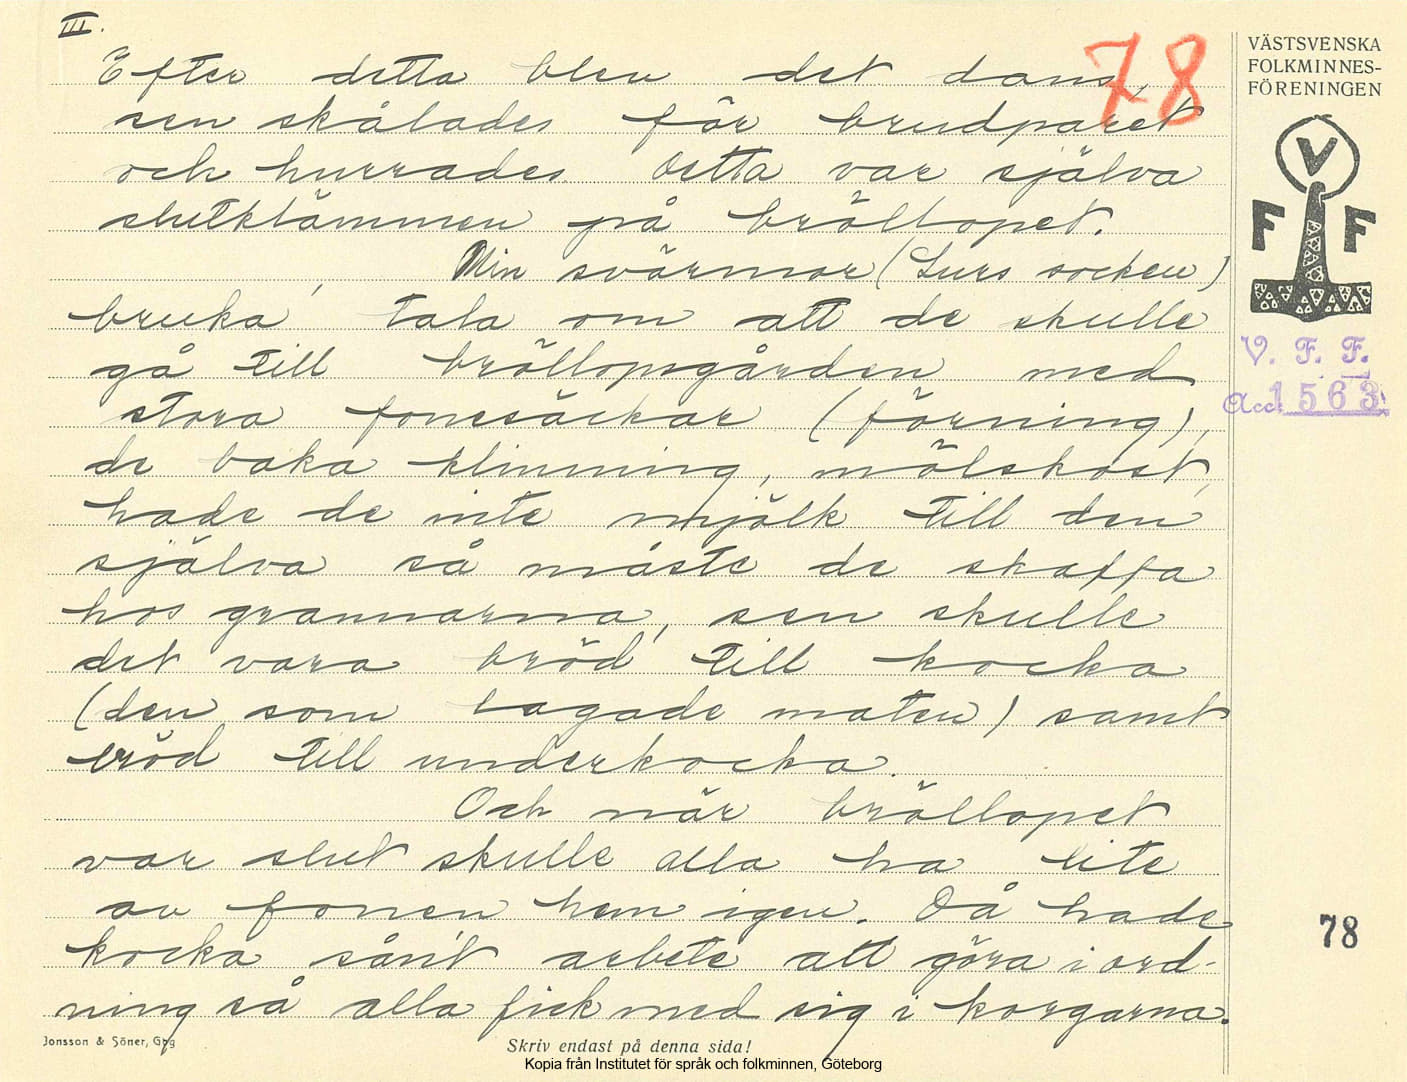 III.
78
Efter detta blev det dans,
sen skålades för brudparet
och hurrades. Detta var själva
slutklämmen på bröllopet.
Min svärmor (Lurs socken)
bruka tala om att de skulle
gå till bröllopsgården med
stora fonesäckar (förning),
de baka klinning, mölskost,
hade de inte mjölk till den
själva så måste de skaffa
hos grannarna, sen skulle
det vara bröd till kocka
(den som lagade maten) samt
bröd till underkocka.
Och när bröllopet
var slut skulle alla ha lite
av fonen hem igen. Då hade
kocka sånt arbete att göra i ord-
ning så alla fick med sig i korgarna.
VÄSTSVENSKA
FOLKMINNES-
FÖRENINGEN
V
F F
V. F. F.
Acc. 1563
78
Jonsson & Söner, Gbg
Skriv endast på denna sida!
Kopia från Institutet för språk och folkminnen, Göteborg